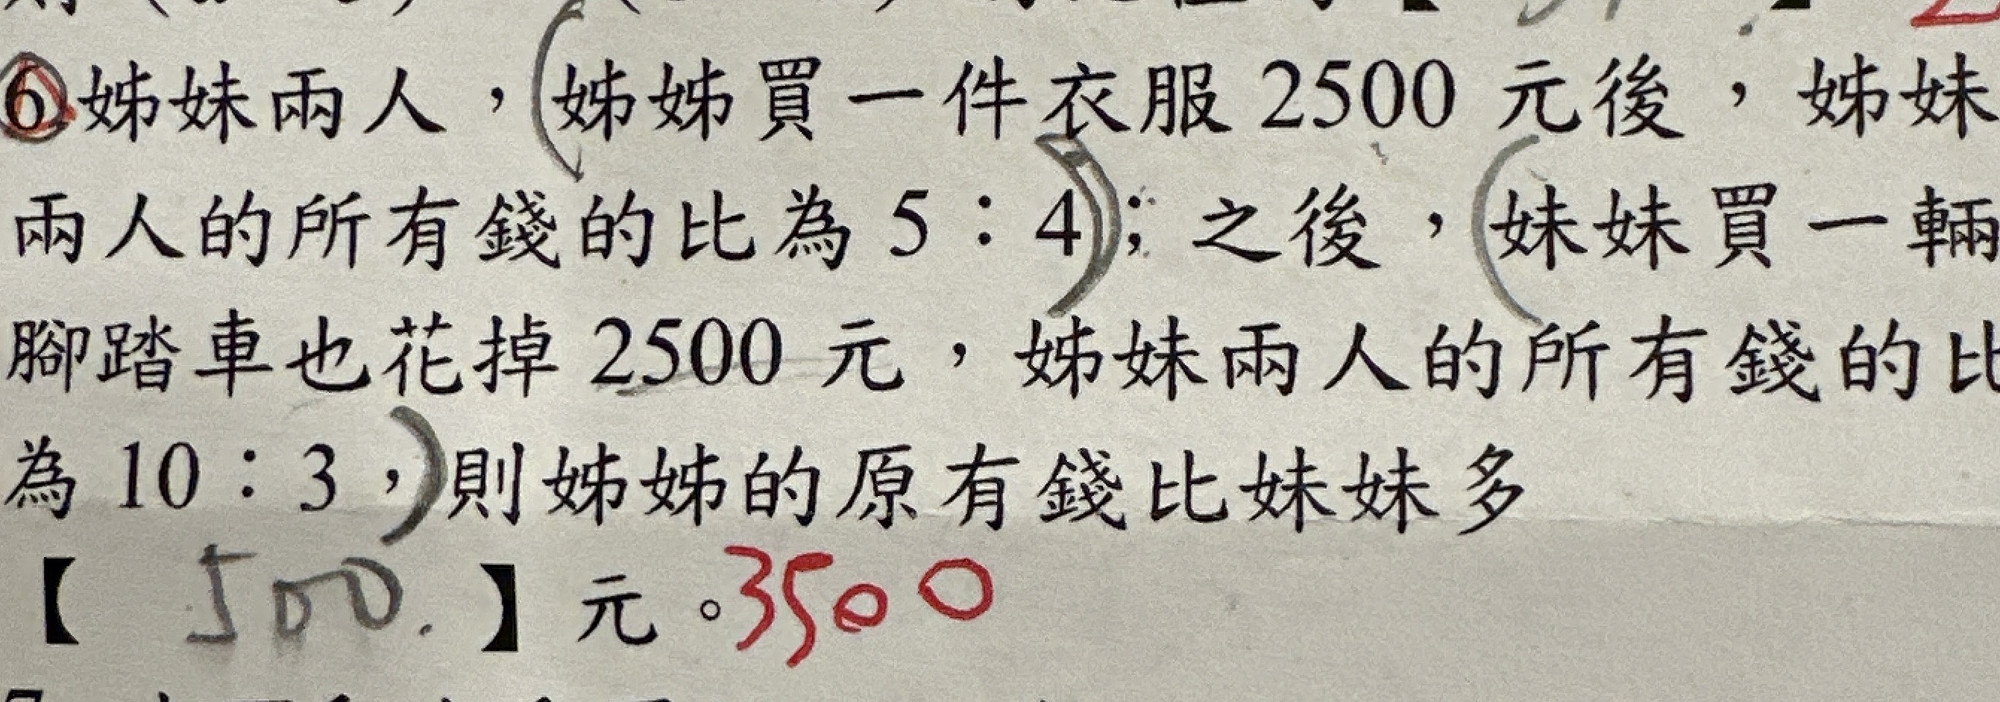 6.姊妹兩人，姊姊買一件衣服 2500 元後，姊妹
兩人的所有錢的比為 5：4；之後，妹妹買一輛
腳踏車也花掉 2500 元，姊妹兩人的所有錢的比
為 10：3，則姊姊的原有錢比妹妹多
【 500. 】元。3500